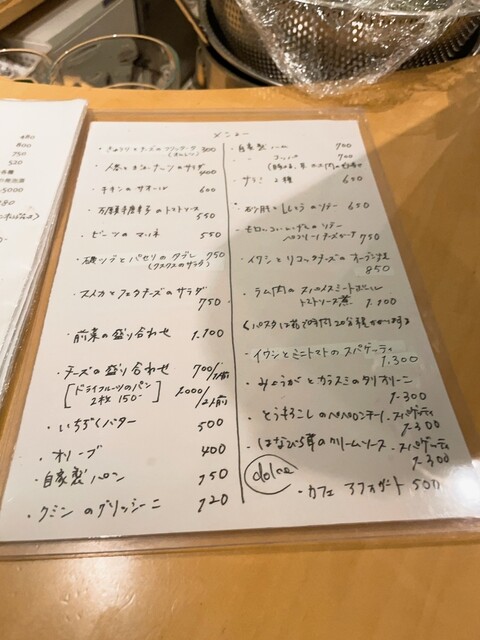 480
800
750
520
5000
メニュー
・きゅうりとチーズの 300
・人参と ナッツのサラダ 400
・チキンの 600
・万願寺唐辛子のトマトソース 550
・ビーツのマリネ 550
・磯ツブとパセリのタブレ 750
(クスクスのサラダ)
・スイカとフェタチーズのサラダ 750
・前菜の盛り合わせ 1.100
・チーズの盛り合わせ 700/1人前
[ドライフルーツのパン 2枚 150-] 1000/2人前
・いちぢくバター 500
・オリーブ 400
・自家製パン 150
・クミンのグリッシーニ 120
・自家製ハム 700
・コッパ 700
・サラミ2種 650
・砂肝としし唐のソテー 650
・モロッコいんげんのソテー
ペコリーノチーズがけ 750
・イワシとリコッタチーズのオーブン焼 850
・ラム肉のスパイスミートボール
トマトソース煮 1.100
(パスタは茹で時間20分程かかります)
・イワシとミニトマトのスパゲッティ 1.300
・みょうがとカラスミのタリオリーニ 1.300
・とうもろこしのペペロンチーノ スパゲッティ 1.300
・はなびら茸のクリームソース スパゲッティ 1.300
dolce
・カフェ アフォガート 500